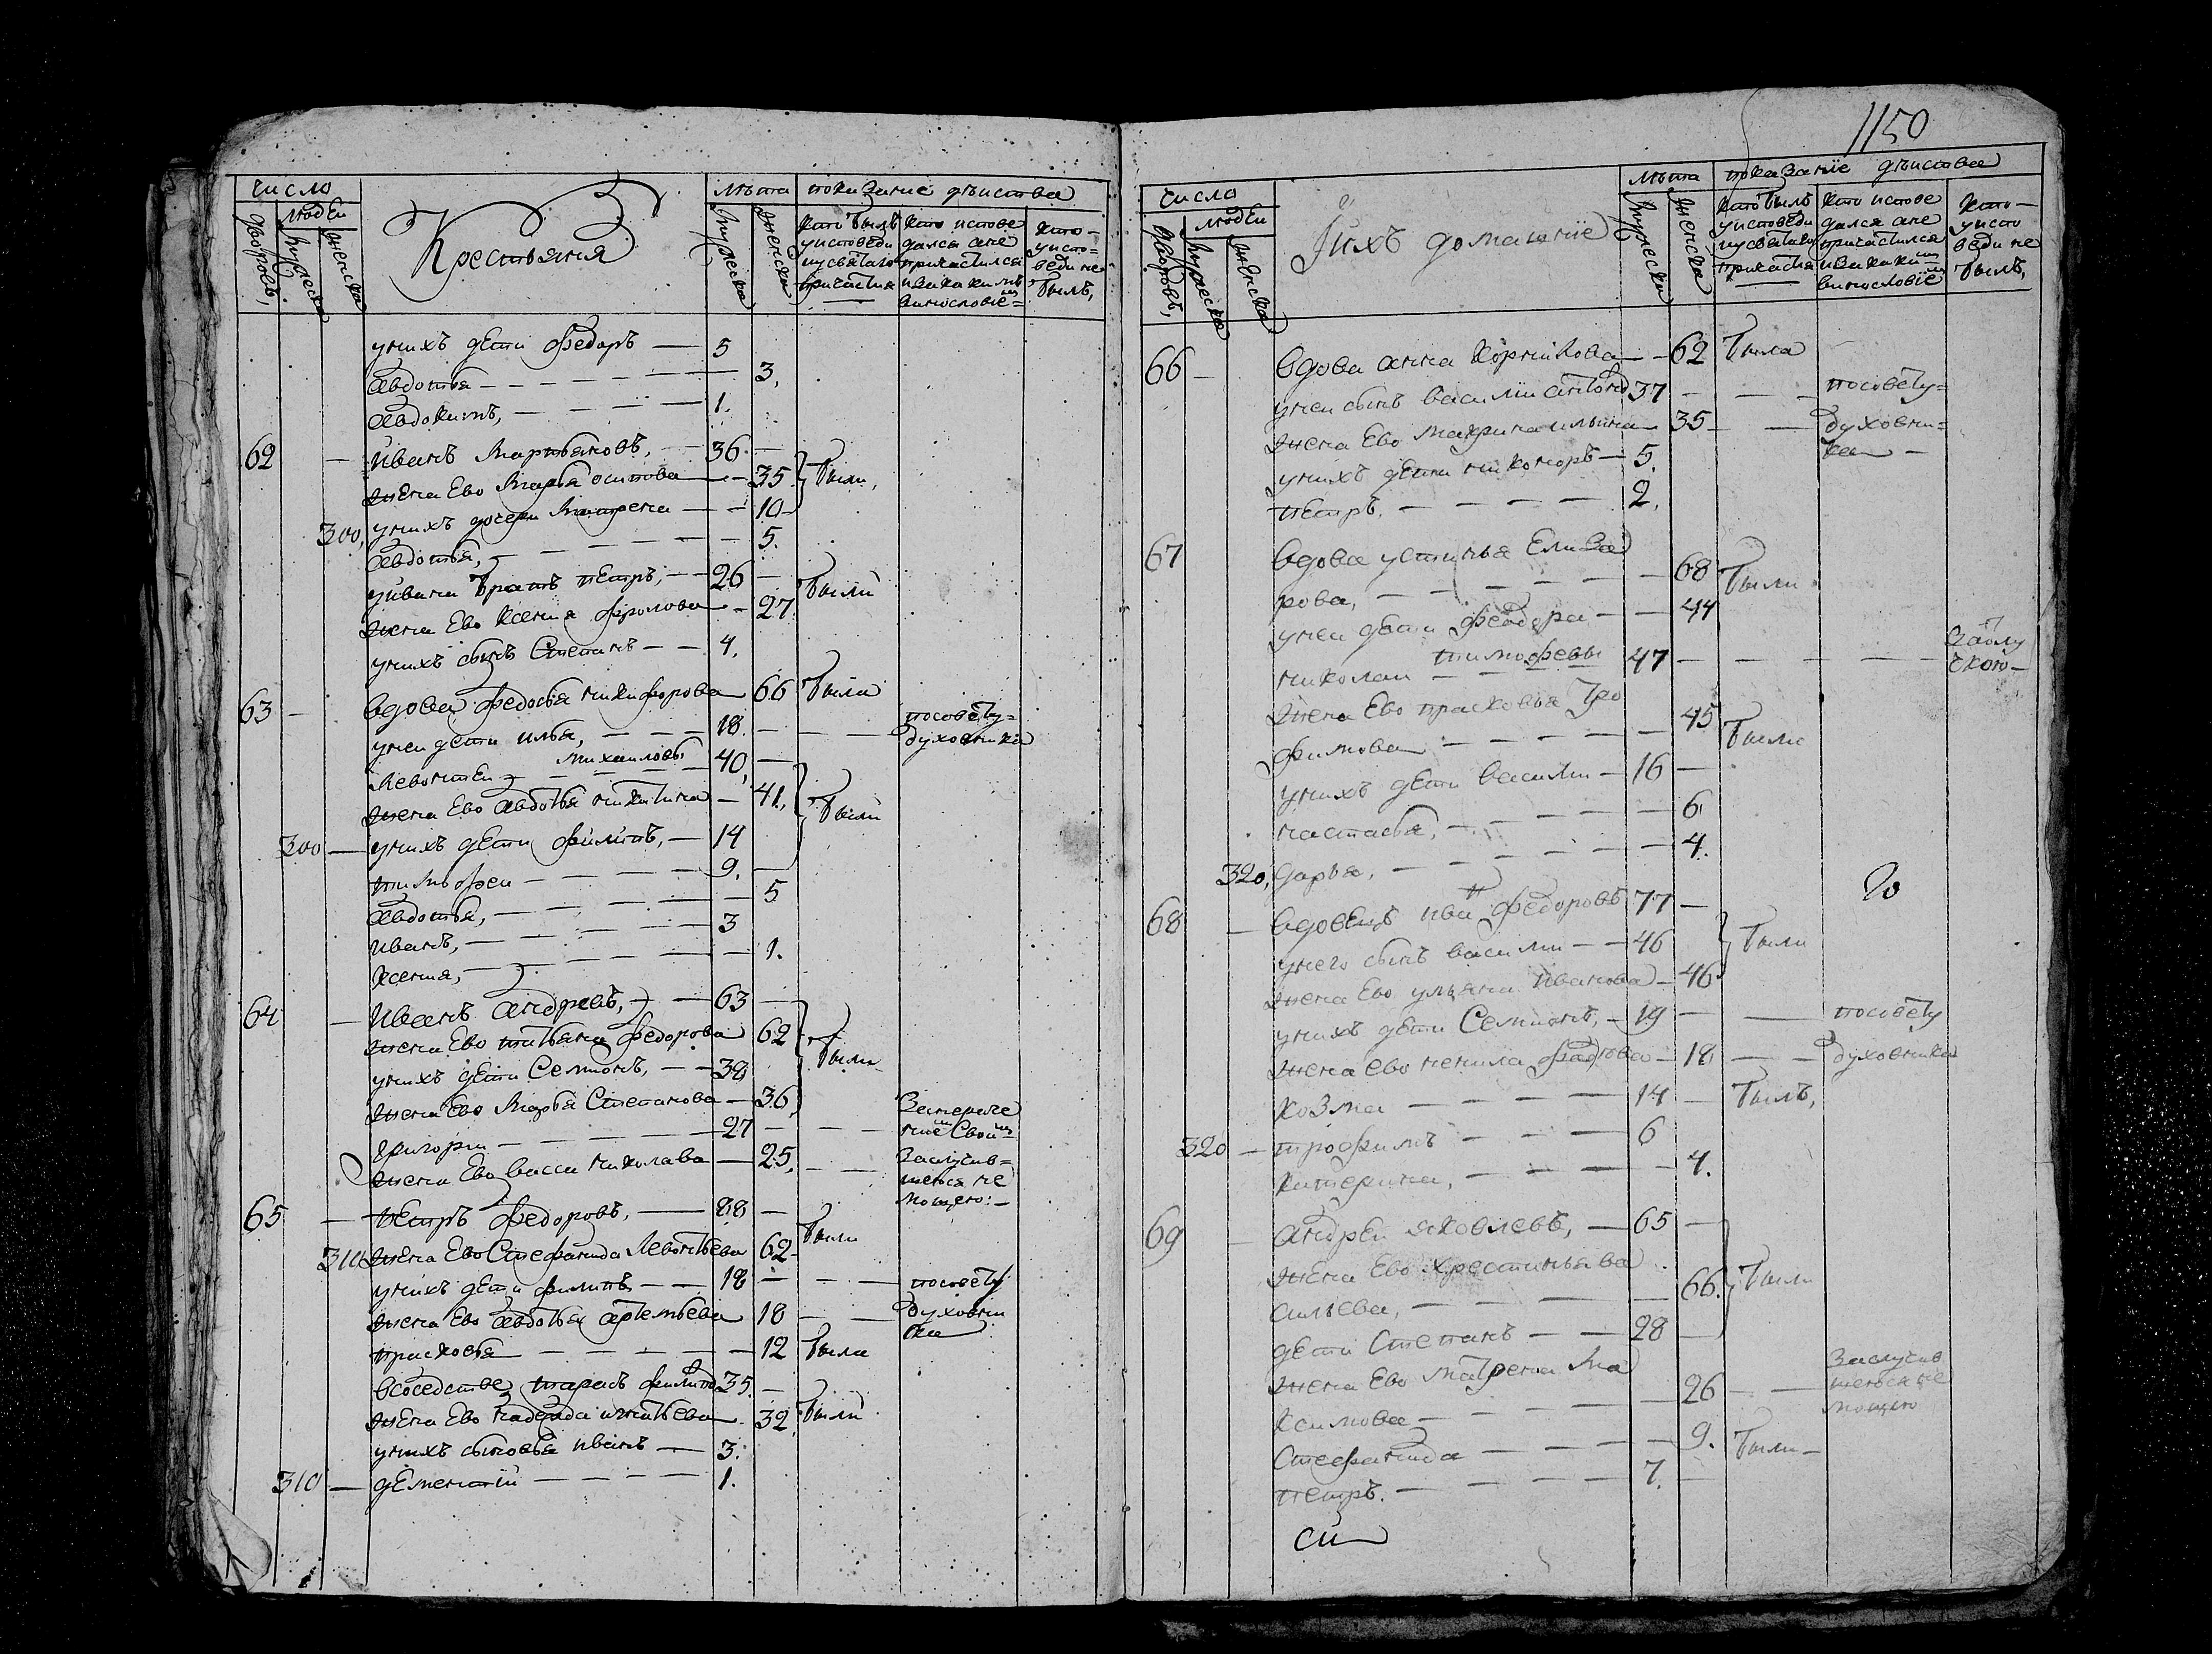 число
людеи
дворовъ,
мужеска
женска
Крестьяня
лѣта
мужеска
женска
показание дѣиства
кто былъ
уисповеди
иусвятаго
причастия
кто испове
дался ане
причастился
иза какимъ
винословіем
кто
уиспо
веди не
былъ,
унихъ дети федоръ — 5
авдотья — 3.
авдокимъ, — 1.
62 — иванъ мартьяновъ, — 36 —
жена ево марья осипова — 35 были,
унихъ дочери матрена — 10
300, авдотья, — 5.
уивана братъ петръ, — 26 — были
жена ево ксения фролова — 27
унихъ сынъ степанъ — 4.
63 — вдова федосья никифорова 66 была
унеи дети илья, — 18. — посовету
духовника
михаиловы
левонтеи — 40, —
жена ево авдотья никитина — 41, были
300 — унихъ дети филипъ, — 14
тимофеи — 9.
авдотья, — 5
иванъ, — 3
ксения, — 1.
64 — иванъ андреевъ, — 63 —
жена ево татьяна федорова 62 были
унихъ дети семионъ, — 38
жена ево марья степанова — 36
григореи — 27 —
жена ево васса николаева — 25.
заслужив
шеюся не
мощею: —
65 — петръ федоровъ, — 88 —
310 жена ево стефанида левонтьева 62 были
унихъ дети филипъ — 18 — посовету
жена ево авдотья артемьева 18 — духовни
ка
прасковья — 12 была
всоседстве тарасъ филипо 35. —
жена ево надежда игнатьева 32. были
унихъ сыновья иванъ — 3.
310 — дементии — 1.
1150
число
людеи
дворовъ,
мужеска
женска
Ихъ домашние
лѣта
мужеска
женска
показание дѣиства
кто былъ
уисповеди
иусвятаго
причастия
кто испове
дался ане
причастился
иза какимъ
винословіем
кто —
уиспо
веди не
былъ,
66 — вдова анна корникова — 62 была
унеи сынъ василии антоно 37 — посовету
жена ево макрина ильина — 35 — духовни
ка —
унихъ дети никоноръ — 5.
петръ. — 2.
67 вдова устинья елиза
рова, — 68 были
унеи дети федора — 44
тимофевы
николаи — 47 —
жена ево прасковья тро
фимова — 45 были
унихъ дети василии — 16 —
настасья, — 6
320, дарья, — 4.
68 — вдовецъ иван федоровъ 77 —
унего сынъ василии — 46 были
жена ево ульяна иванова — 46
унихъ дети семионъ, — 19 — посовету
жена ево ненила — 18 — духовника
козма — 14 — былъ,
320 — трофимъ — 6
катерина, — 4.
69 — андреи яковлевъ, — 65 —
жена ево хрестинья ва
сильева, — 66. были
дети степанъ — 28 —
жена ево матрена ма
ксимова — 26 —
заслужив
шеюся не
мощею
стефанида — 9. были —
петръ. — 7. —